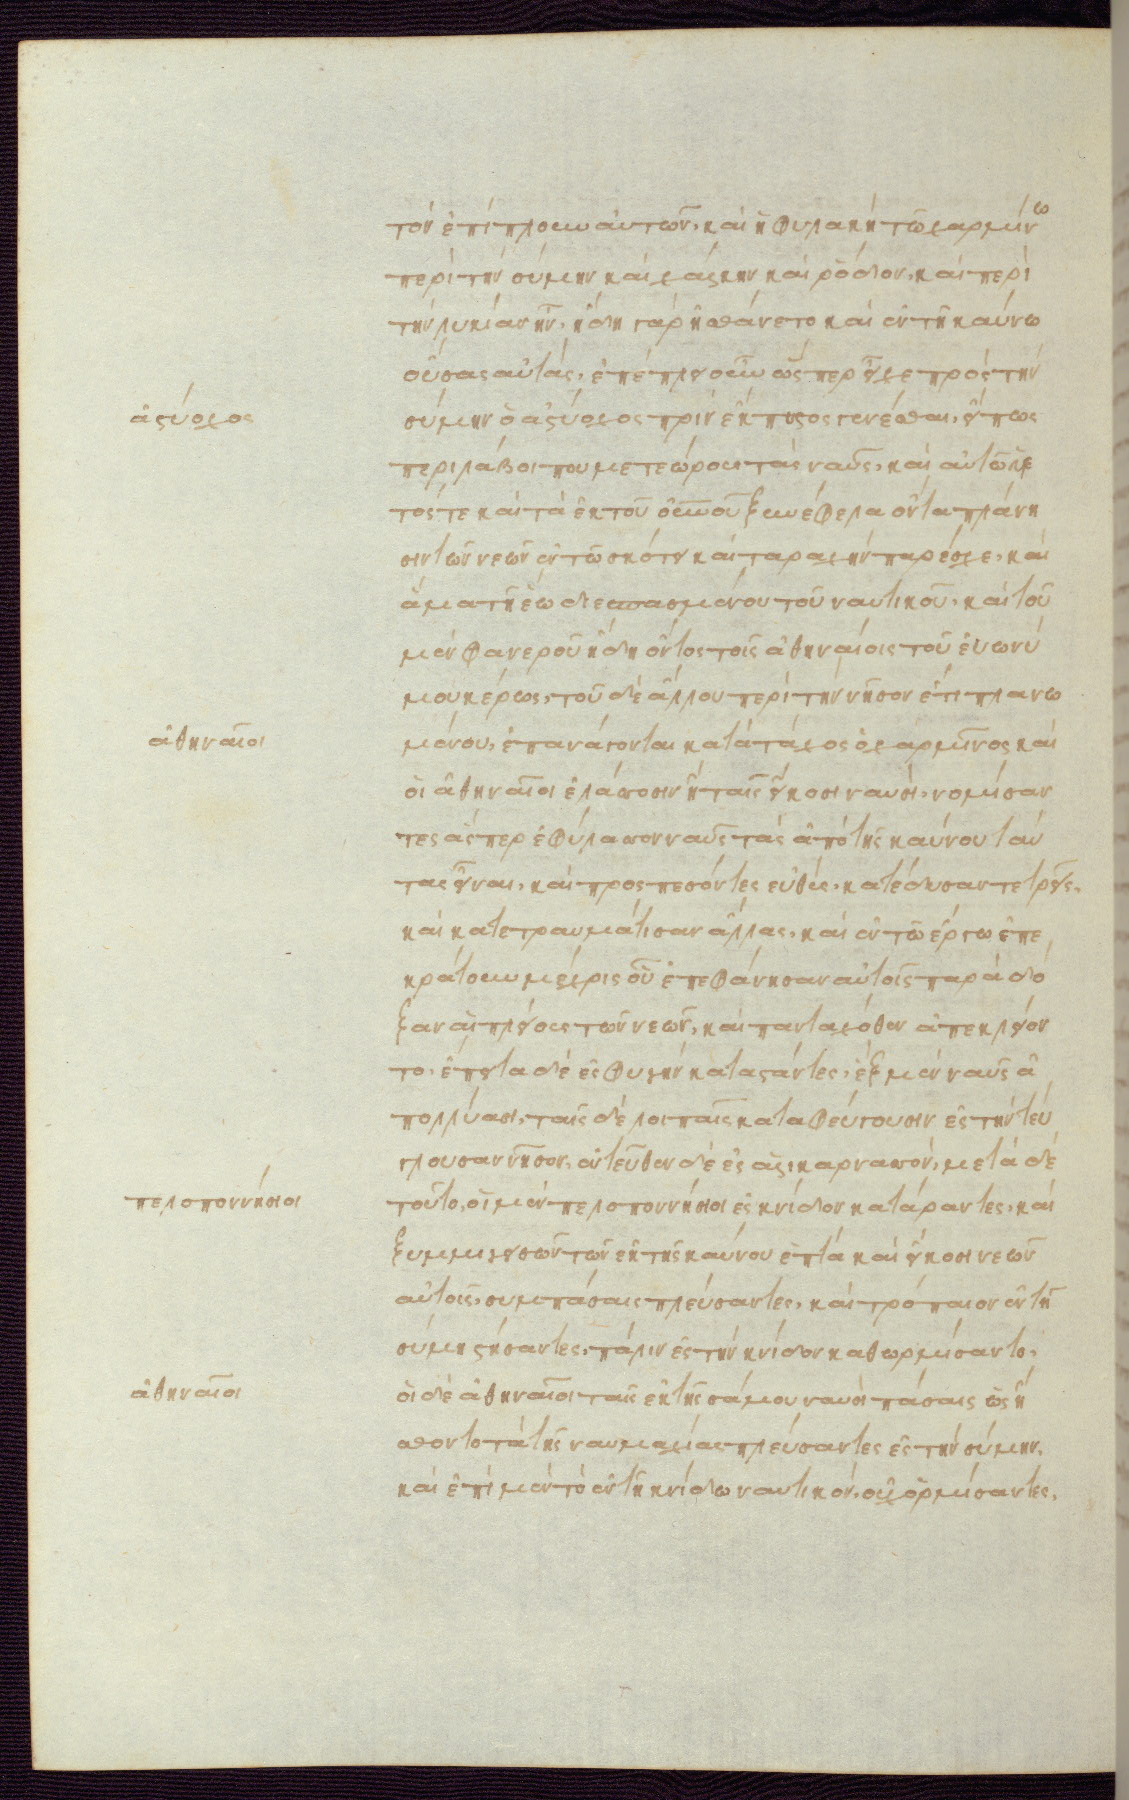 τὸν ἐπίπλουν αὐτῶν, καὶ ἡ φυλακὴ τῷ χαρμίνῳ
περὶ τὴν σύμην καὶ χάλκην καὶ ῥόδον, καὶ περὶ
τὴν λυκίαν ἦν, ἤδη γὰρ ἠσθάνετο καὶ ἐν τῇ καύνω
οὔσας αὐτὰς, ἐπέπλει οὖν ὥσπερ εἶχε πρὸς τὴν
ἀστύοχος
σύμην ὁ ἀστύοχος πρὶν ἔκπυστος γενέσθαι, εἴ πως
περιλάβοι που μετεώρους τὰς ναῦς, καὶ αὐτῷ ὑε
τός τε καὶ τὰ ἐκ τοῦ οὐρανοῦ ξυννέφελα ὄντα πλάνη
σιν τῶν νεῶν ἐν τῷ σκότει καὶ ταραχὴν παρέσχε, καὶ
ἅμα τῇ ἕω διεσπασμένου τοῦ ναυτικοῦ, καὶ τοῦ
μὲν φανεροῦ ἤδη ὄντος τοῖς ἀθηναίοις τοῦ εὐωνύ
μου κέρως, τοῦ δὲ ἄλλου περὶ τὴν νῆσον ἔτι πλανω
ἀθηναῖοι
μένου, ἐπανάγονται κατὰ τάχος ὁ χαρμῖνος καὶ
οἱ ἀθηναῖοι ἐλάσσοσιν ἢ ταῖς εἴκοσι ναυσὶ, νομίσαν
τες ἅσπερ ἐφύλασσον ναῦς τὰς ἀπὸ τῆς καύνου ταύ
τας εἶναι, καὶ προσπεσόντες εὐθὺς, κατέδυσαν τε τρεῖς,
καὶ κατετραυμάτισαν ἄλλας, καὶ ἐν τῷ ἔργω ἐπε
κράτουν μέχρις οὗ ἐπεφάνησαν αὐτοῖς παρὰ δό
ξαν αἱ πλείους τῶν νεῶν, καὶ πανταχόθεν ἀπεκλείον
το, ἔπειτα δὲ ἐς φυγὴν καταστάντες, ἓξ μὲν ναῦς ἀ
πολλύασι, ταῖς δὲ λοιπαῖς καταφεύγουσιν ἐς τὴν τεύ
γλουσαν νῆσον, ἐντεῦθεν δὲ ἐς ἁλικαρνασσὸν, μετὰ δὲ
πελοποννήσιοι
τοῦτο, οἱ μὲν πελοποννήσιοι ἐς κνίδον κατάραντες, καὶ
ξυμμιγεισῶν τῶν ἐκ τῆς καύνου ἑπτὰ καὶ εἴκοσι νεῶν
αὐτοῖς, συμπάσαις πλεύσαντες, καὶ τρόπαιον ἐν τῇ
σύμη στήσαντες, πάλιν ἐς τὴν κνίδον καθωρμίσαντο,
ἀθηναῖοι
οἱ δὲ ἀθηναῖοι ταῖς ἐκ τῆς σάμου ναυσὶ πάσαις ὡς ἤ
σθοντο τὰ τῆς ναυμαχίας πλεύσαντες ἐς τὴν σύμην,
καὶ ἐπὶ μὲν τὸ ἐν τῇ κνίδω ναυτικὸν, οὐχ ὁρμίσαντες,